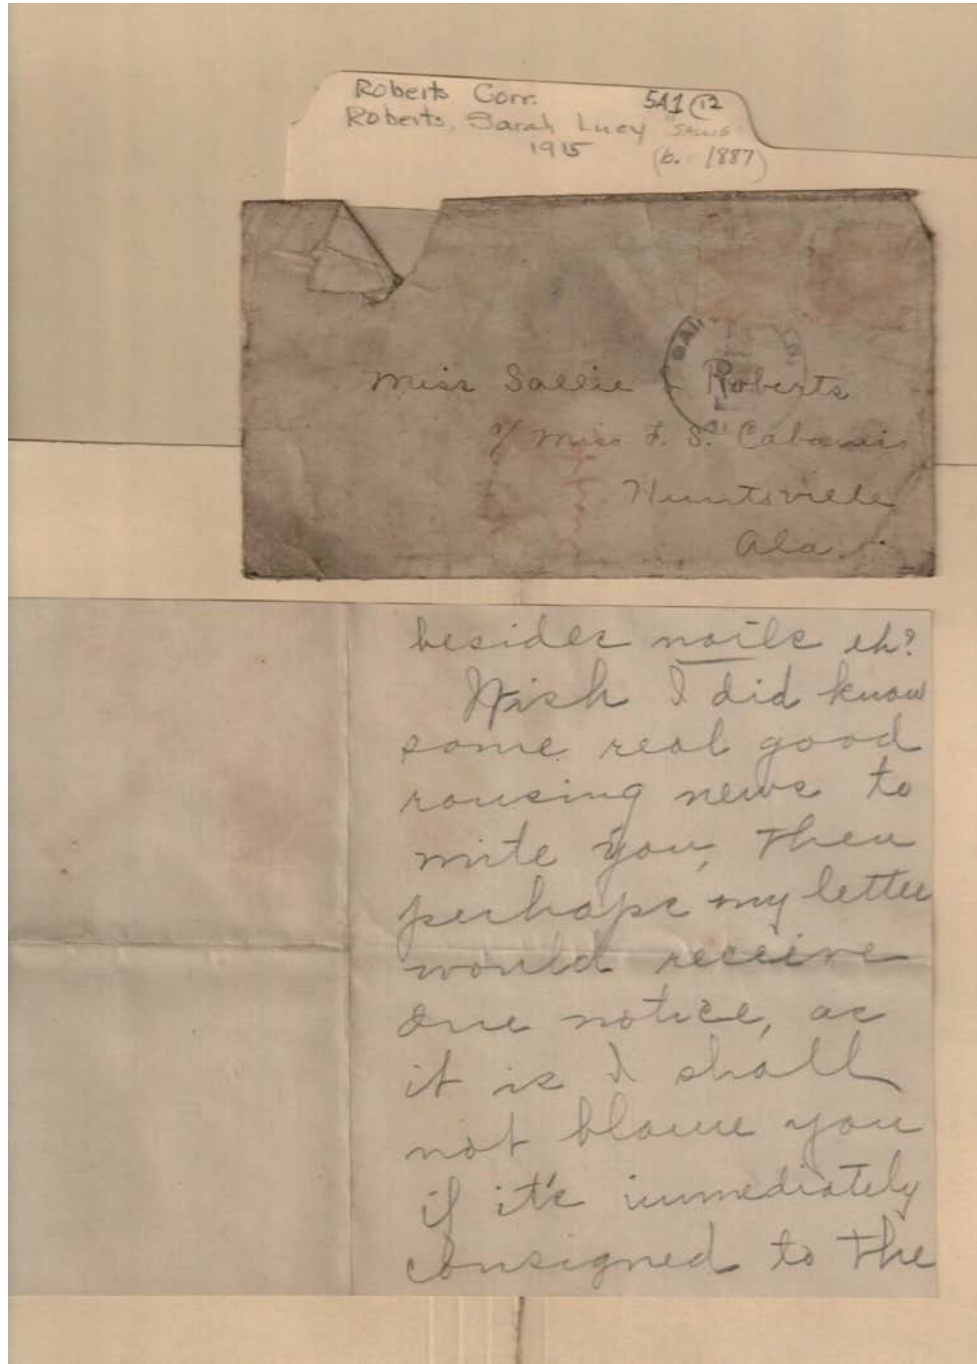 Roberts Corr. 5A1 (12
Roberts, Sarah Lucy "SALLIE"
1915 (b. 1887)
Miss Sallie Roberts
c/ Miss F. S. Cabaniss
Huntsville
Ala.
besides nails eh?
Wish I did know
some real good
rousing news to
write you, then
perhaps my letter
would receive
due notice, as
it is I shall
not blame you
if it's immediately
consigned to the